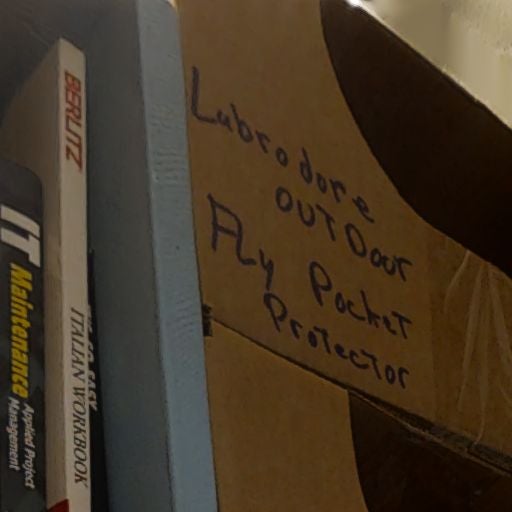 IT Maintenance
Applied Project
Management
BERLITZ
ITALIAN WORKBOOK
EASY
Labrodore
OUTDoor
Fly Pocket
Protector